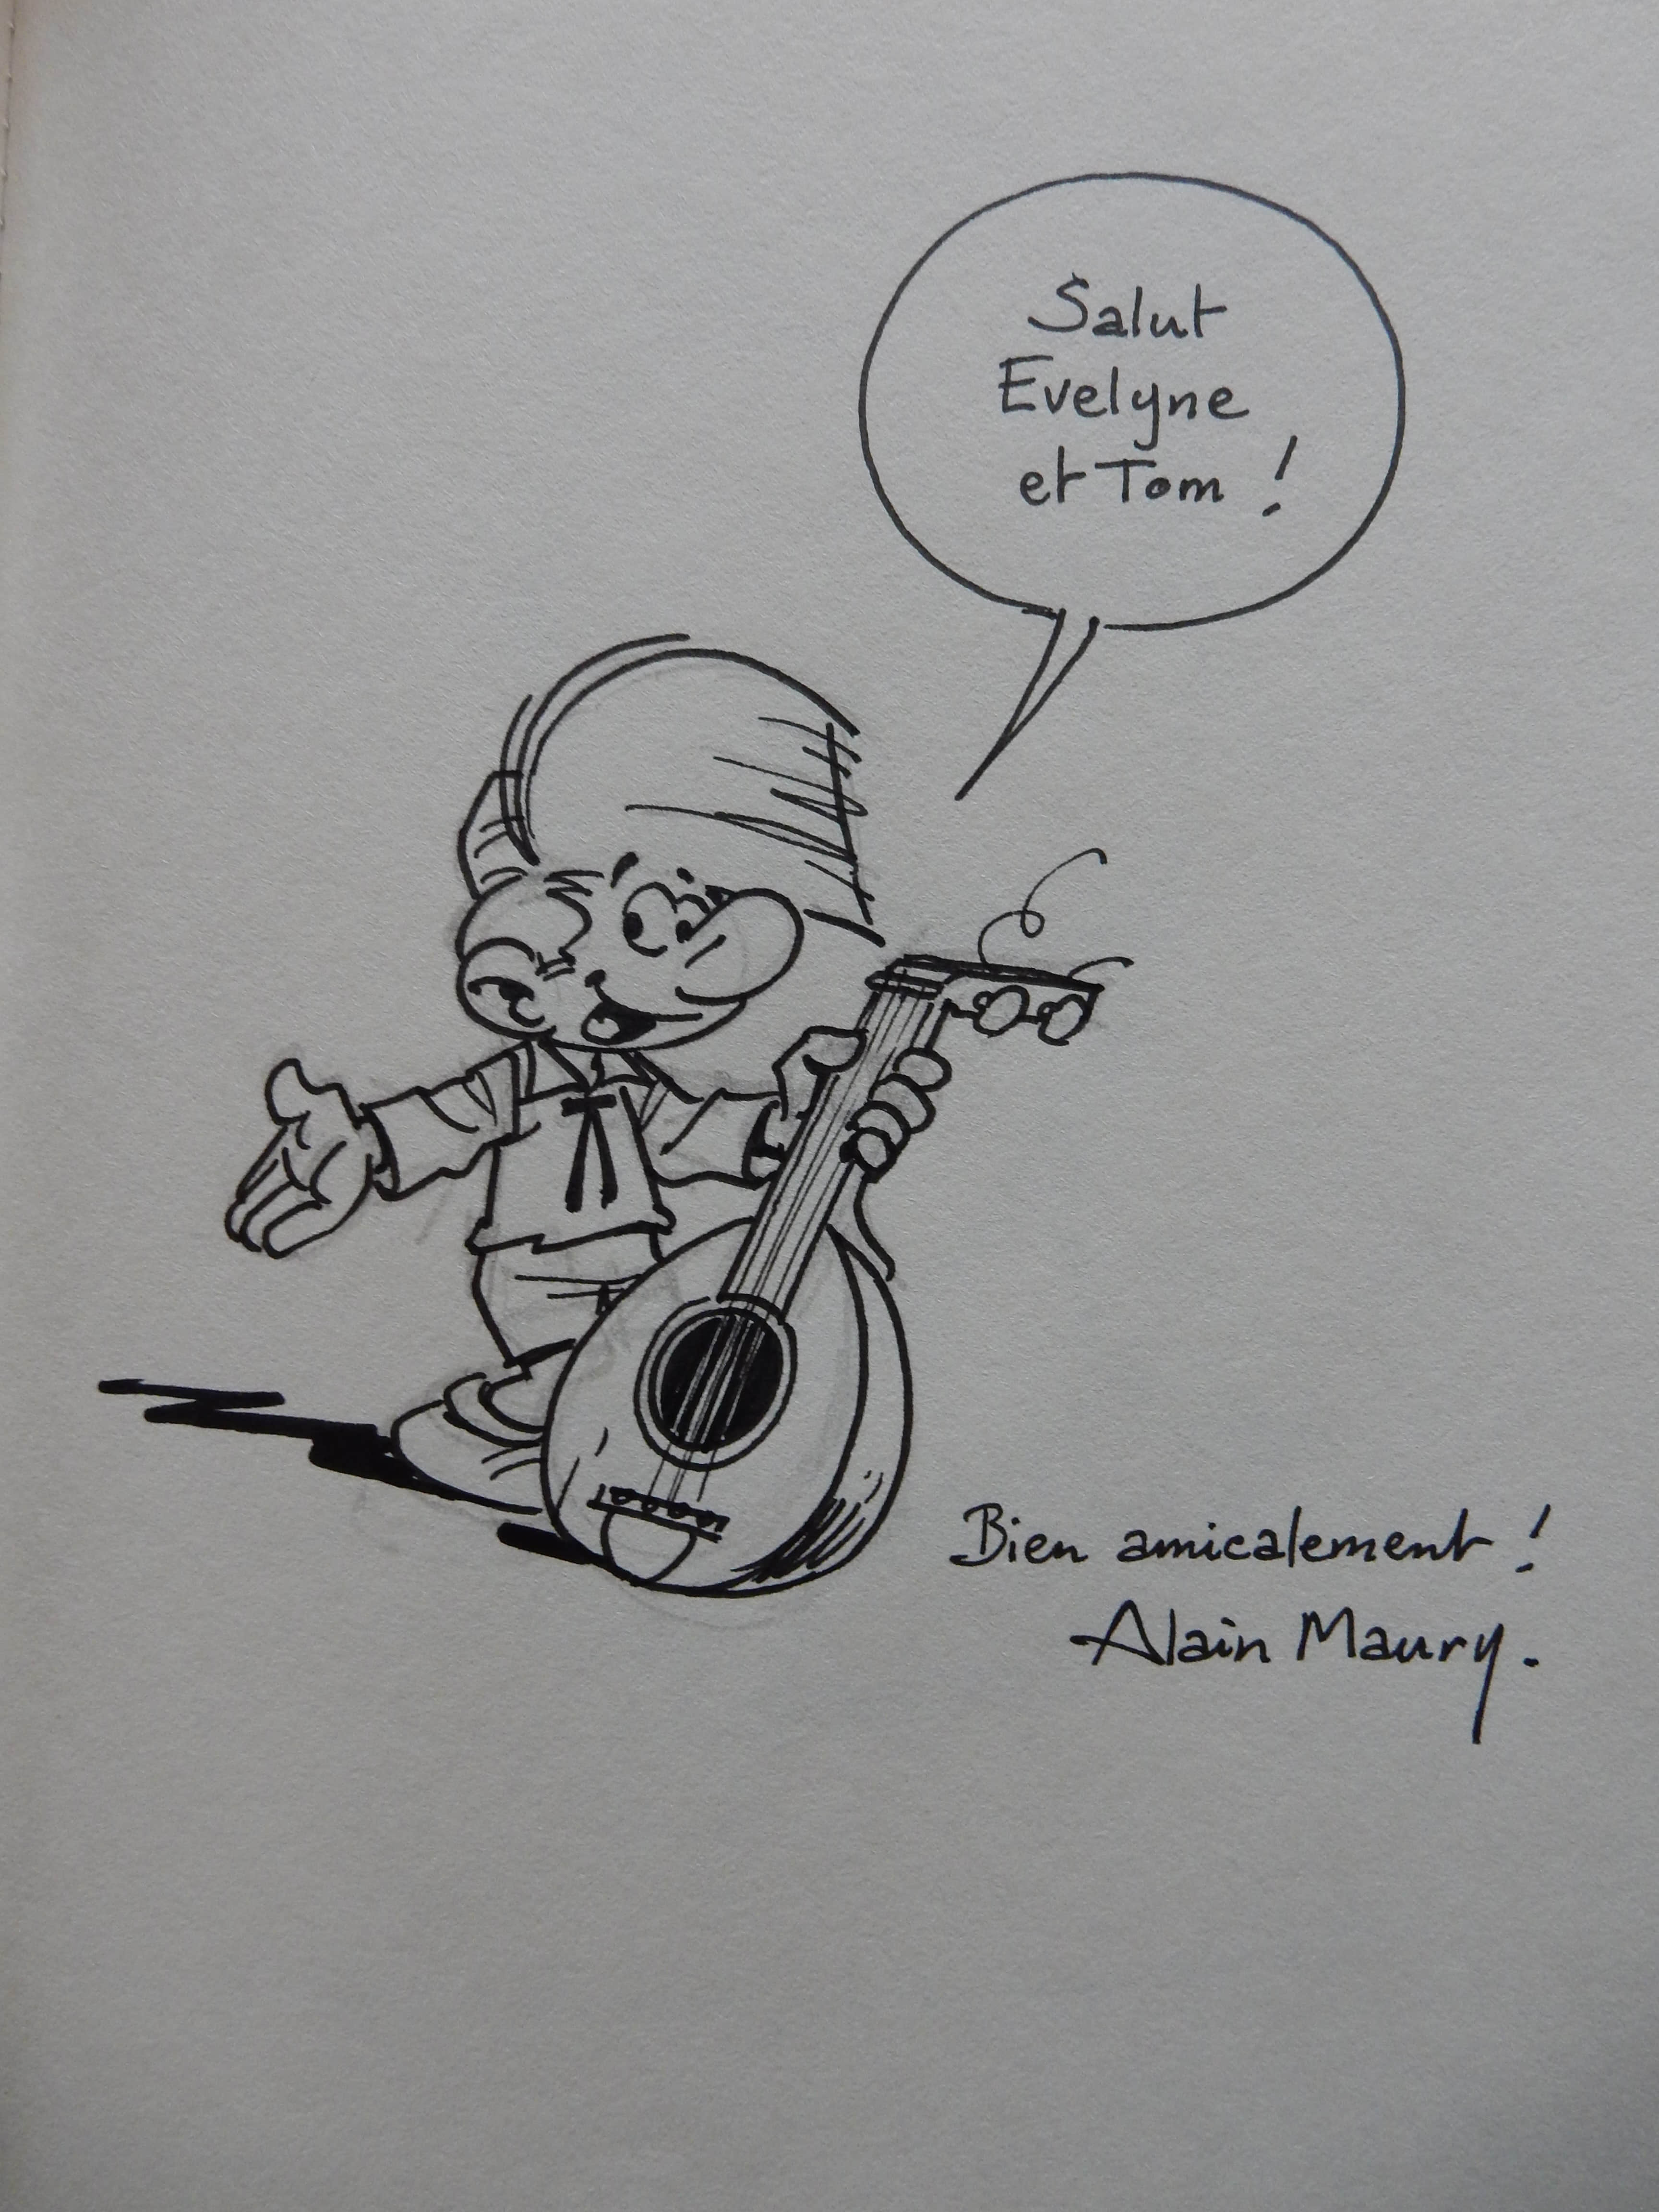 Salut
Evelyne
et Tom !
Bien amicalement !
Alain Maury.